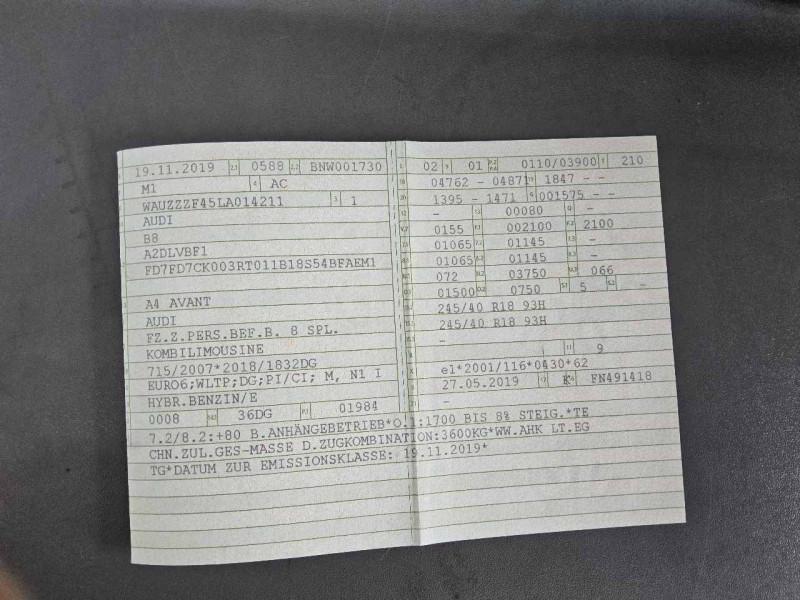 19.11.2019 0588 BNW001730
M1 AC
WAUZZZF45LA014211 3 1
AUDI
B8
A2DLVBF1
FD7FD7CK003RT011B18S54BFAEM1
A4 AVANT
AUDI
FZ.Z.PERS.BEF.B. 8 SPL.
KOMBILIMOUSINE
715/2007*2018/1832DG
EURO6;WLTP;DG;PI/CI; M, N1 I
HYBR.BENZIN/E
0008 36DG 01984
02 01 0110/03900 210
04762 - 04871 1847 - -
1395 - 1471 001575 - -
- 00080 -
0155 002100 2100
01065 01145 -
01065 01145 -
072 03750 066
01500 0750 5 -
245/40 R18 93H
245/40 R18 93H
-
9
e1*2001/116*0430*62
27.05.2019 K FN491418
-
7.2/8.2:+80 B.ANHÄNGEBETRIEB*O.1:1700 BIS 8% STEIG.*TE
CHN.ZUL.GES-MASSE D.ZUGKOMBINATION:3600KG*WW.AHK LT.EG
TG*DATUM ZUR EMISSIONSKLASSE: 19.11.2019*